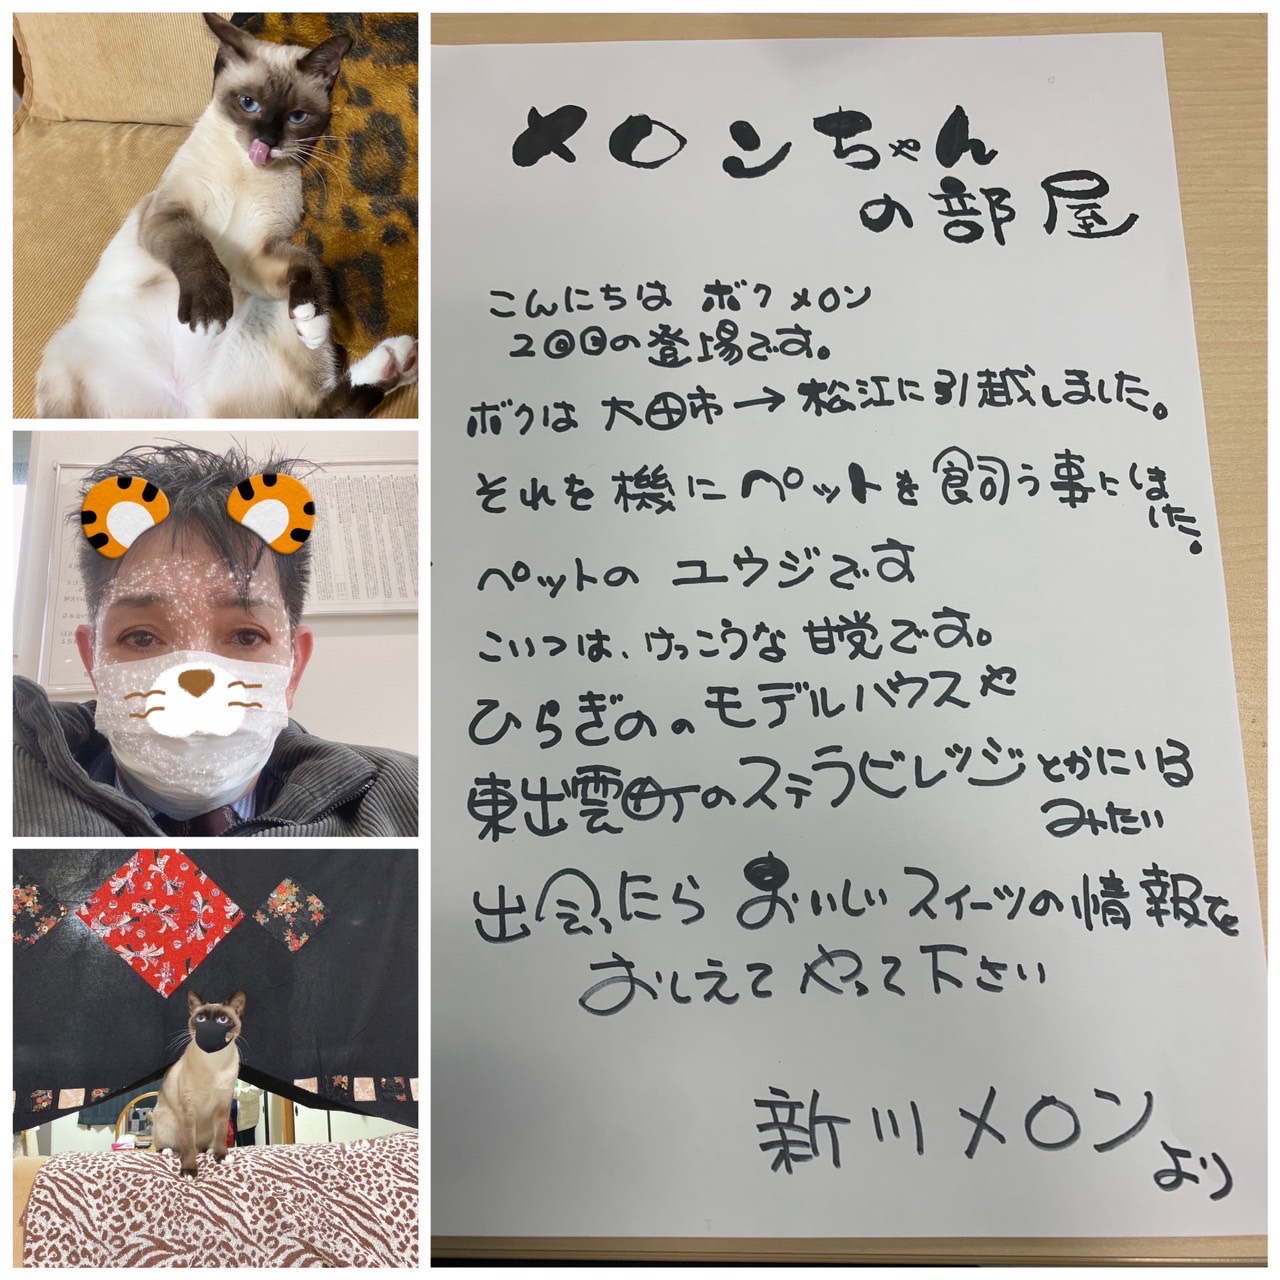 メロンちゃん
の部屋
こんにちは ボクメロン
2回目の登場です。
ボクは大田市→松江に引越しました。
それを機にペットを飼う事にしま
した。
ペットのユウジです
こいつは、けっこうな甘党です。
ひらぎののモデルハウスや
東出雲町のステラビレッジとかにいる
みたい
出会ったら おいしいスイーツの情報を
おしえてやって下さい
新川メロン
より